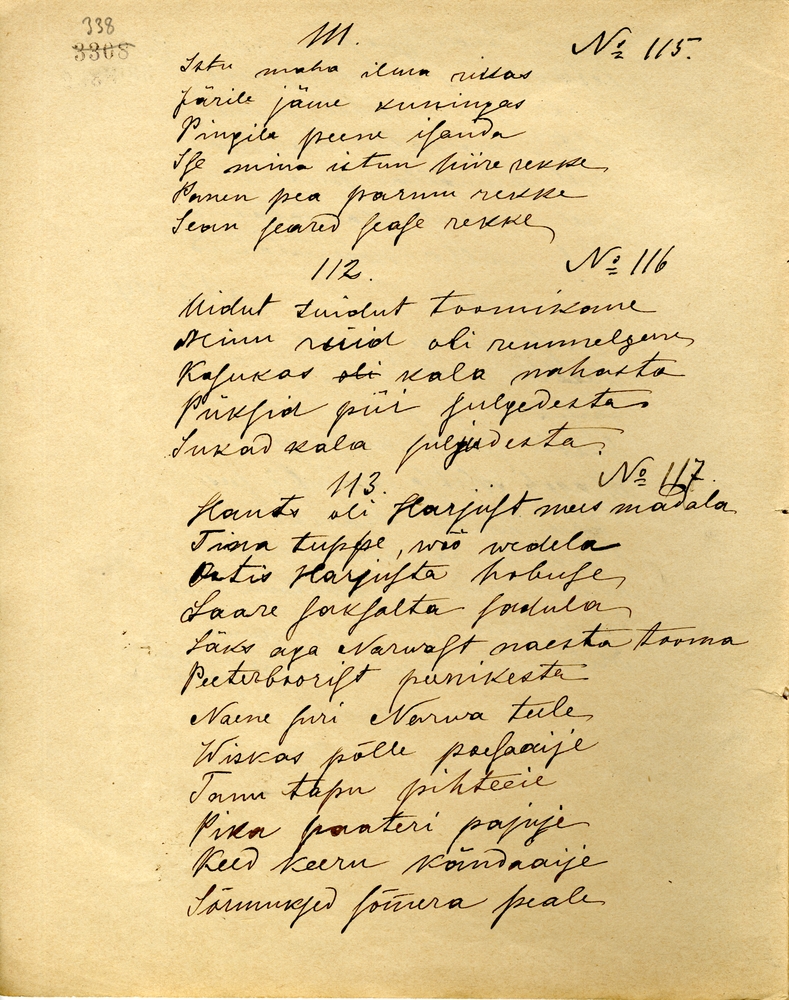 338
3308
111.
№ 115.
Istu maha ilma rikas
Järile jäme kuningas
Pingile peene isanda
Ise mina istun hiire rekke
Panen pea parmu rekke
Sean seared sease rekke
112.
№ 116
Uidut suidut toomikane
Minu rüüd oli remmelgene
Kasukas oli kala nahasta
Püksid püi sulgedesta
Sukad kala suljudesta.
113.
№ 117.
Hants oli Harjust mees madala
Tina tuppe, wöö wedela
Ostis Harjusta hobuse
Saare saksalta sadula
Läks aga Narwast naesta tooma
Peeterboorist peenikesta
Naene suri Narwa teele
Wiskas põlle poesaaije
Tanu tapu pihteeie
Pika paateri pajuje
Keed keeru kändaaije
Sõrmuksed sõmera peale